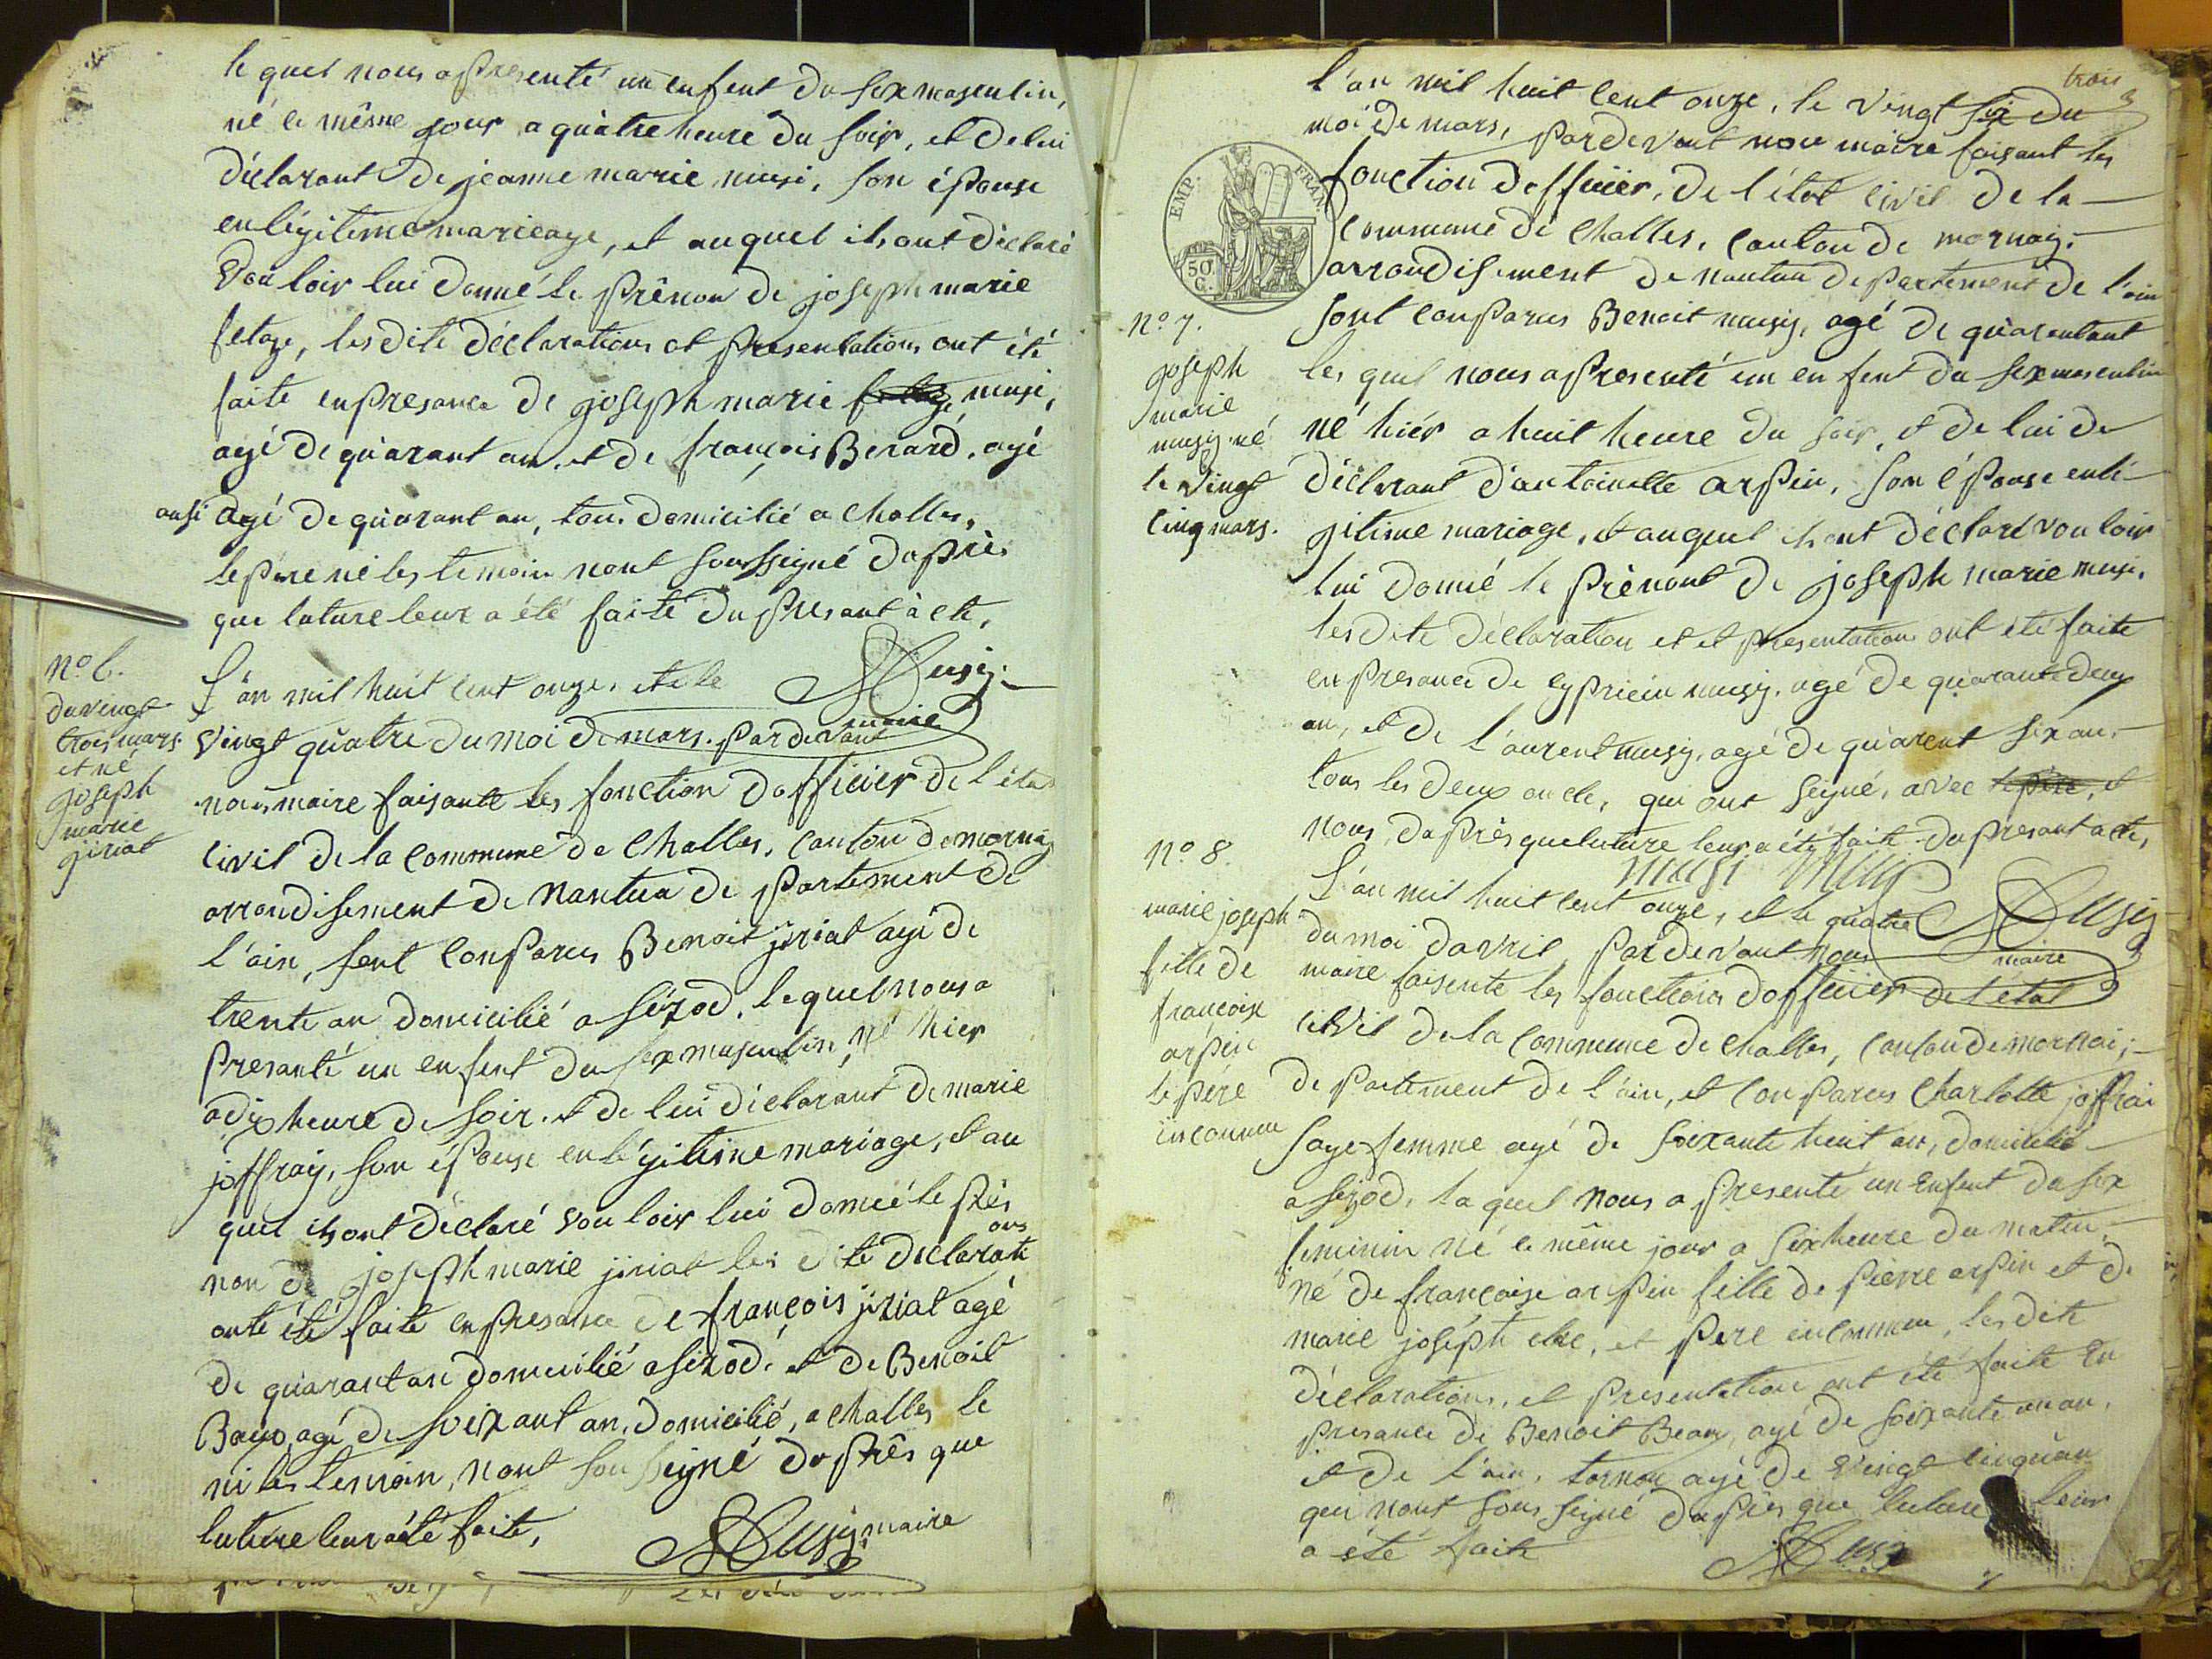 le quel nous a presenté un enfent du sex masculin,
né le même jour a quàtre heure du soir, et de lui
déclarant de jeanne marie musi, son épouse
en légitime marieage, et auquel ils ont déclaré
vouloir lui donné le prênon de joseph marie
fetaz, les dite déclarations et presentations ont été
faite en presance de joseph marie musi,
agé de quarant an et de françois Berard, agé
ausi agé de quarant an, tous domicilié a Challes,
le pere né les temoin nont soussigné daprès
que luture leur a été faite du presant àcte,
Musy
maire
No 6.
du vingt
trois mars
et né
joseph
marie
giriat
L'an mil huit cent onze, et le
vingt quàtre du moi de mars. par devant
nous maire faisante les fonction dofficier de l'état
civil de la commune de Challes, canton de mornay
arrondisement de Nantua de partement de
l'ain, sont conparus Benoit jiriat agé de
trente an domicilié a sézod, le quel nous a
presanté un enfent du sex masculin, né hier
a dix heure de soir. et de lui déclarant de marie
joffray, son épouse en légitime mariage, et au
quel ils ont déclaré vouloir lui donné le prés
non de joseph marie jiriat les dite déclarati
ons
onte été faite en presance de françois jiriat agé
de quàrant an domicilié a sézod, et de Benoit
Baux, agé de soixant an, domicilié, a Challes le
ni les temoin, nont sousseigné daprês que
luture leur àété faite,
Musy maire
trois
3
l'an mil huit cent onze, le vingt six du
moi de mars, par devant nous maire faisant les
EMP. FRAN.
50 C.
fonction dofficier, de l'état civil de la
commune de Challes, canton de mornay,
arrondisement de nantua de partement de l'ain
No 7.
joseph
marie
musy né
le vingt
cinq mars.
sont conparus Benoit musy, agé de quàrantant
les quel nous a presenté un en fent du sex masculin
né hiér a huit heure du soir, et de lui de
déclarant d'antoinette arpin, son épouse en lé
gitime mariage, et auquel ils ont déclaré vouloir
lui donné le prénont de joseph marie musi,
les dite déclaration et et presentations ont été faite
en presance de cypriein musy, agé de quàrante deux
an, et de l'aurent musy, agé de quàrent six an,
tous les deux oncle, qui ont seigné, avec le père, et
nous, daprès que luture leur a été fait du presant acte,
musi
Musy
maire
No 8.
marie joseph
fille de
françoise
arpin
le pére
inconnu
L'an mil huit cent onze, et le quàtre
du moi davril, par devant nous
maire faisente les fonctions dofficier de l'état
civil de la commune de Challes, canton de mornai,
de partement de l'ain, et conparus Charlotte joffrai
sage femme agé de soixante huit an, domicilié
a sézod, la quel nous a presenté un enfent du sex
feminin né le même jour a six heure du matin,
né de françoise arpin fille de pierre arpin et de
marie joséph, et pere inconnu, les dite
déclarations, et presentation ont été faite en
presance de Benoit Beaux, agé de soixante un an,
et de l'ain, tornon agé de vingt cinq an
qui nont sous signé daprès que luture leur
a été faite
Musy